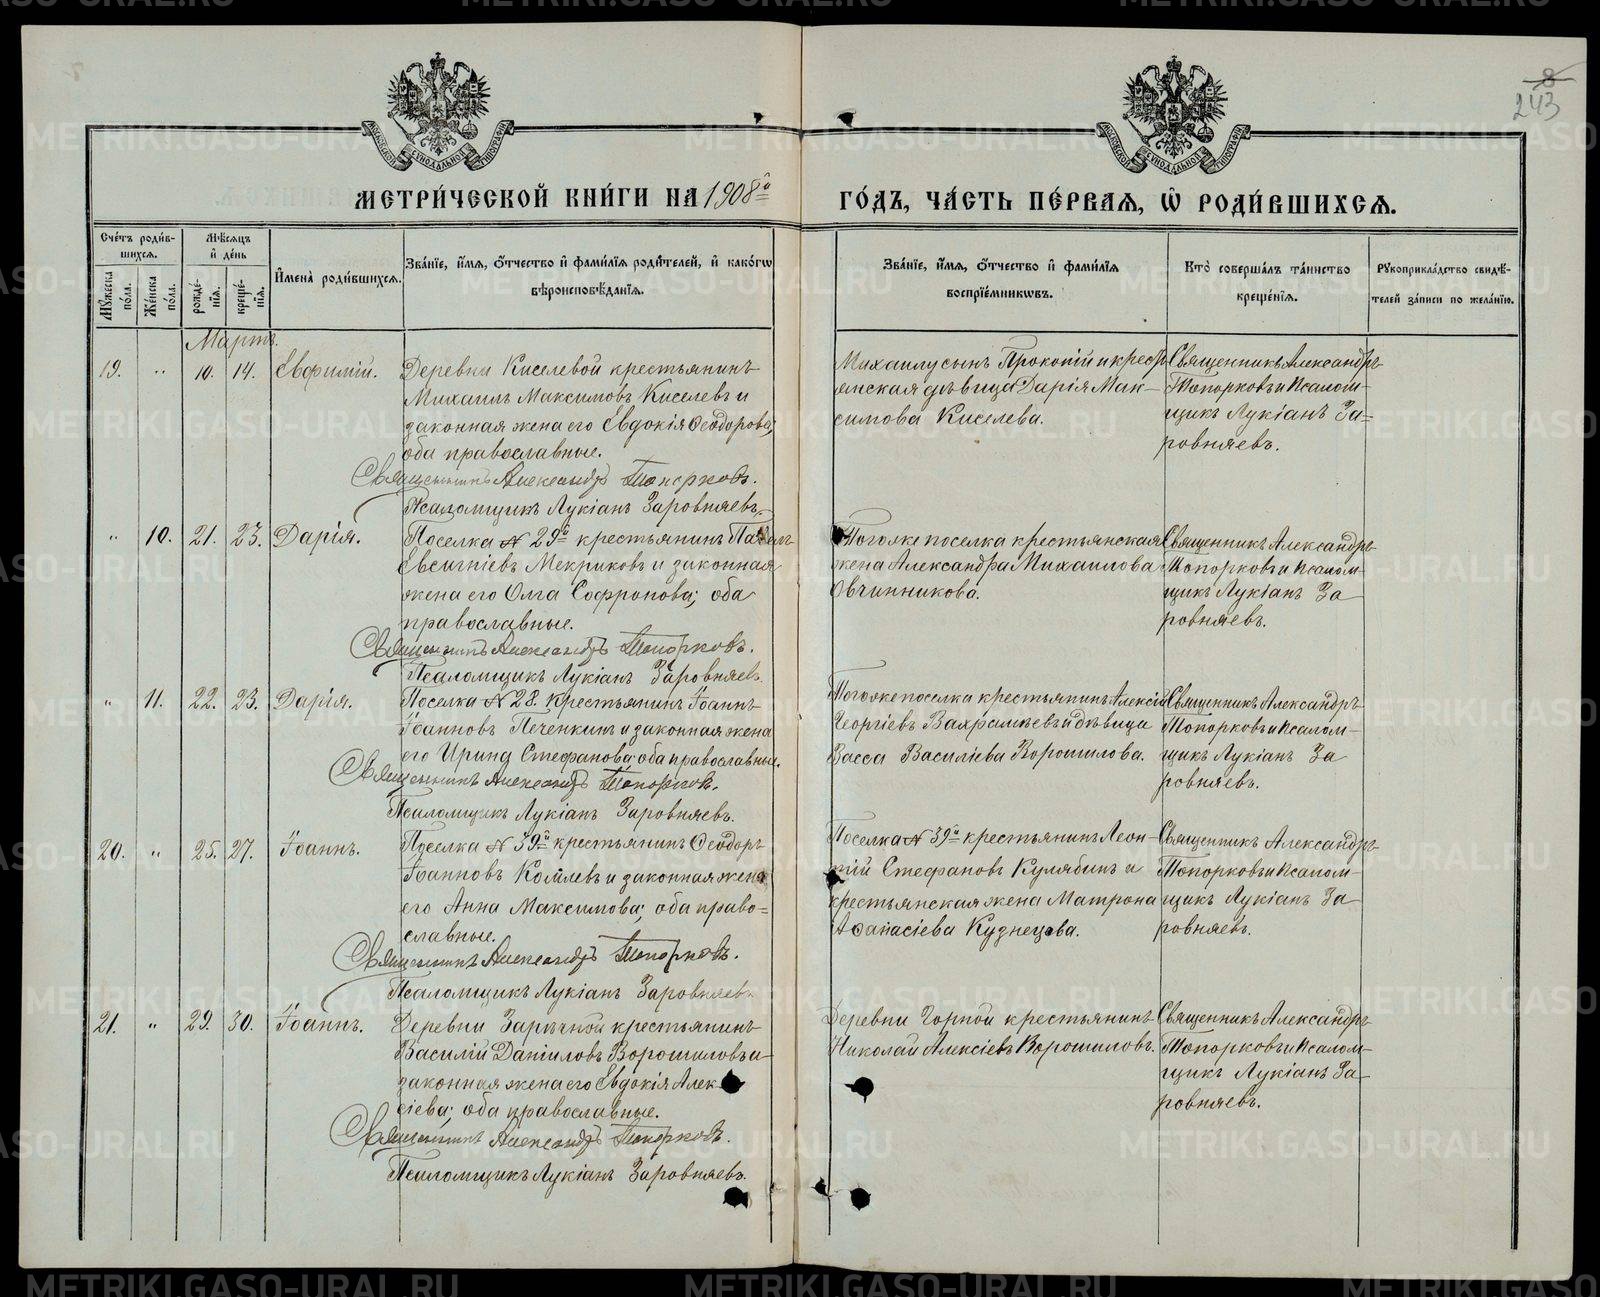 8
243
МЕТРИ́ЧЕСКОЙ КНИ́ГИ НА 1908й
ГО́ДЪ, ЧА́СТЬ ПЕ́РВАЯ, Ѡ РОДИ́ВШИХСЯ.
Сче́тъ роди́в-
шихся.
Мѣ́сяцъ
и де́нь
Му́жеска по́ла.
Же́нска по́ла.
рожде́-
нія.
креще́-
нія.
Имена̀ роди́вшихся.
Зва́ніе, и́мя, ѻ́тчество и фами́лія роди́телей, и како́гѡ
вѣроисповѣ́данія.
Зва́ніе, и́мя, ѻ́тчество и фами́лія
воспріе́мникѡвъ.
Кто̀ соверша́лъ та́инство
креще́нія.
Рукоприкла́дство свидѣ́-
телей за́писи по жела́нію.
Мартъ.
19. „ 10. 14. Евфимій.
Деревни Киселевой крестьянинъ
Михаилъ Максимовъ Киселевъ и
законная жена его Евдокія Ѳеодорова;
оба православные.
Священникъ Александръ Топорковъ.
Псаломщикъ Лукіанъ Заровняевъ.
Михаилу сынъ Прокопій и кресть
янская дѣвица Дарія Мак-
симова Киселева.
Священникъ Александръ
Топорковъ и Псалом-
щикъ Лукіанъ За=
ровняевъ.
„ 10. 21. 23. Дарія.
Поселка № 29й крестьянинъ Павелъ
Евсигніевъ Мекриковъ и законная
жена его Олга Софронова; оба
православные.
Священникъ Александръ Топорковъ.
Псаломщикъ Лукіанъ Заровняевъ.
Тогоже поселка крестьянская
жена Александра Михаилова
Овчинникова.
Священникъ Александръ
Топорковъ и Псалом-
щикъ Лукіанъ За
ровняевъ.
„ 11. 22. 23. Дарія.
Поселка № 28. крестьянинъ Іоаннъ
Іоанновъ Печенкинъ и законная жена
его Ирина Стефанова; оба православные.
Священникъ Александръ Топорковъ.
Псаломщикъ Лукіанъ Заровняевъ.
Тогоже поселка крестьянинъ Алексій
Георгіевъ Вахрамѣевъ и дѣвица
Васса Василіева Ворошилова.
Священникъ Александръ
Топорковъ и Псалом-
щикъ Лукіанъ За
ровняевъ.
20. „ 25. 27. Іоаннъ.
Поселка № 39й крестьянинъ Ѳеодоръ
Іоанновъ Комлевъ и законная жена
его Анна Максимова; оба право=
славные.
Священникъ Александръ Топорковъ.
Псаломщикъ Лукіанъ Заровняевъ.
Поселка № 39й крестьянинъ Леон-
тій Стефановъ Кулябинъ и
крестьянская жена Матрона
Аѳанасіева Кузнецова.
Священникъ Александръ
Топорковъ и Псалом-
щикъ Лукіанъ За
ровняевъ.
21. „ 29. 30. Іоаннъ.
Деревни Заричной крестьянинъ
Василій Даніиловъ Ворошиловъ и
законная жена его Евдокія Алек
сіева; оба православные.
Священникъ Александръ Топорковъ.
Псаломщикъ Лукіанъ Заровняевъ.
Деревни Горной крестьянинъ
Николай Алексіевъ Ворошиловъ.
Священникъ Александръ
Топорковъ и Псалом-
щикъ Лукіанъ За
ровняевъ.